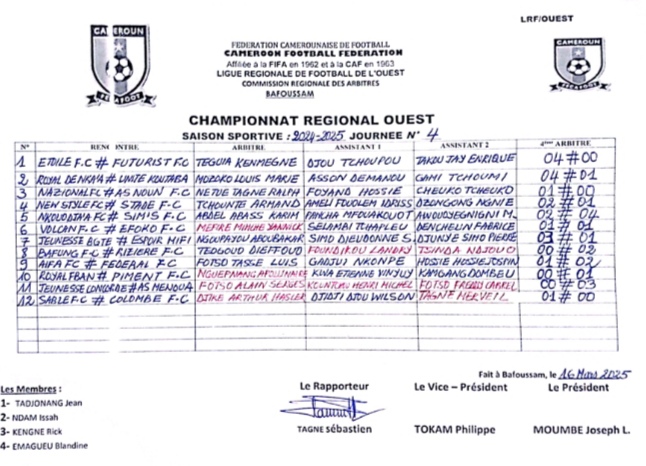 LRF/OUEST
CAMEROUN
FECAFOOT
CAMEROUN
FECAFOOT
FEDERATION CAMEROUNAISE DE FOOTBALL
CAMEROON FOOTBALL FEDERATION
Affiliée à la FIFA en 1962 et à la CAF en 1963
LIGUE REGIONALE DE FOOTBALL DE L'OUEST
COMMISSION REGIONALE DES ARBITRES
BAFOUSSAM
CHAMPIONNAT REGIONAL OUEST
SAISON SPORTIVE : 2024-2025 JOURNEE N° 4
N° RENCONTRE ARBITRE ASSISTANT 1 ASSISTANT 2 4ème ARBITRE
1 ETOILE F.C # FUTURIST F.C TEGUIA KENMEGNE DJOU TCHOUPOU TAKOU JAY ENRIQUE 04 # 00
2 ROYAL DE NKA'A # UNITE KOUTABA MOZOKO LOUIS MARIE ASSON DEMANOU GAMI TCHOUMI 04 # 01
3 NAZIONAL FC # AS NOUN F.C NETUE TAGNE RALPH FOYAND HOSSIE CHEUKO TCHEUKO 01 # 00
4 NEW STYLE FC # STADE F.C TCHOUNTE ARMAND AMELI FOUOLEM IDRISS DZONGONG NGNIE 02 # 01
5 NKOLODIMA FC # SIMIS F.C ABDEL ABASS KARIM PARCHA MFOUAKOUOT AWOUDSEGNIGNI M. 02 # 04
6 VOLCAN F.C # EFOKO F.C MEFIRE MUNCHE YANNICK SELAMBI TCHAPLEU DENCHELIN FABRICE 01 # 01
7 JEUNESSE BGTE # ESPOIR MIFI NGOUPAYOU ABOUBAKAR SIMO DIEUDONNE S. DJUNYE SIMO PIERRE 03 # 01
8 BAFUNG F.C # RIZIERE F.C TEDGOUD DIEFFOUD FOUNDIKOU LANDRY TSINDA NDJOUO 00 # 02
9 AIFA F.C # FEDERAL F.C FOTSO TASLE LUIS GADJUI NKONPE HOSSIE HOSSIE JOSPIN 01 # 02
10 ROYAL FBAN # PIMENT F.C NGUEPNANG APOLLINAIRE KINA ETIENNE VINJUY KAMGANG DOMBEU 00 # 01
11 JEUNESSE CONCORDE # AS MENOUA FOTSO ALAIN SERGES KOUNTCHOU HENRI MICHEL FOTSO FREDDY CABREL 00 # 03
12 SABLE F.C # COLOMBE F.C DJIKE ARTHUR HASLER DJIDJI DJOU WILSON TAGNE MERVEIL 01 # 00
Fait à Bafoussam, le 16 Mars 2025
Les Membres :
Le Rapporteur Le Vice – Président Le Président
1- TADJONANG Jean
2- NDAM Issah
3- KENGNE Rick
TAGNE sébastien TOKAM Philippe MOUMBE Joseph L.
4- EMAGUEU Blandine